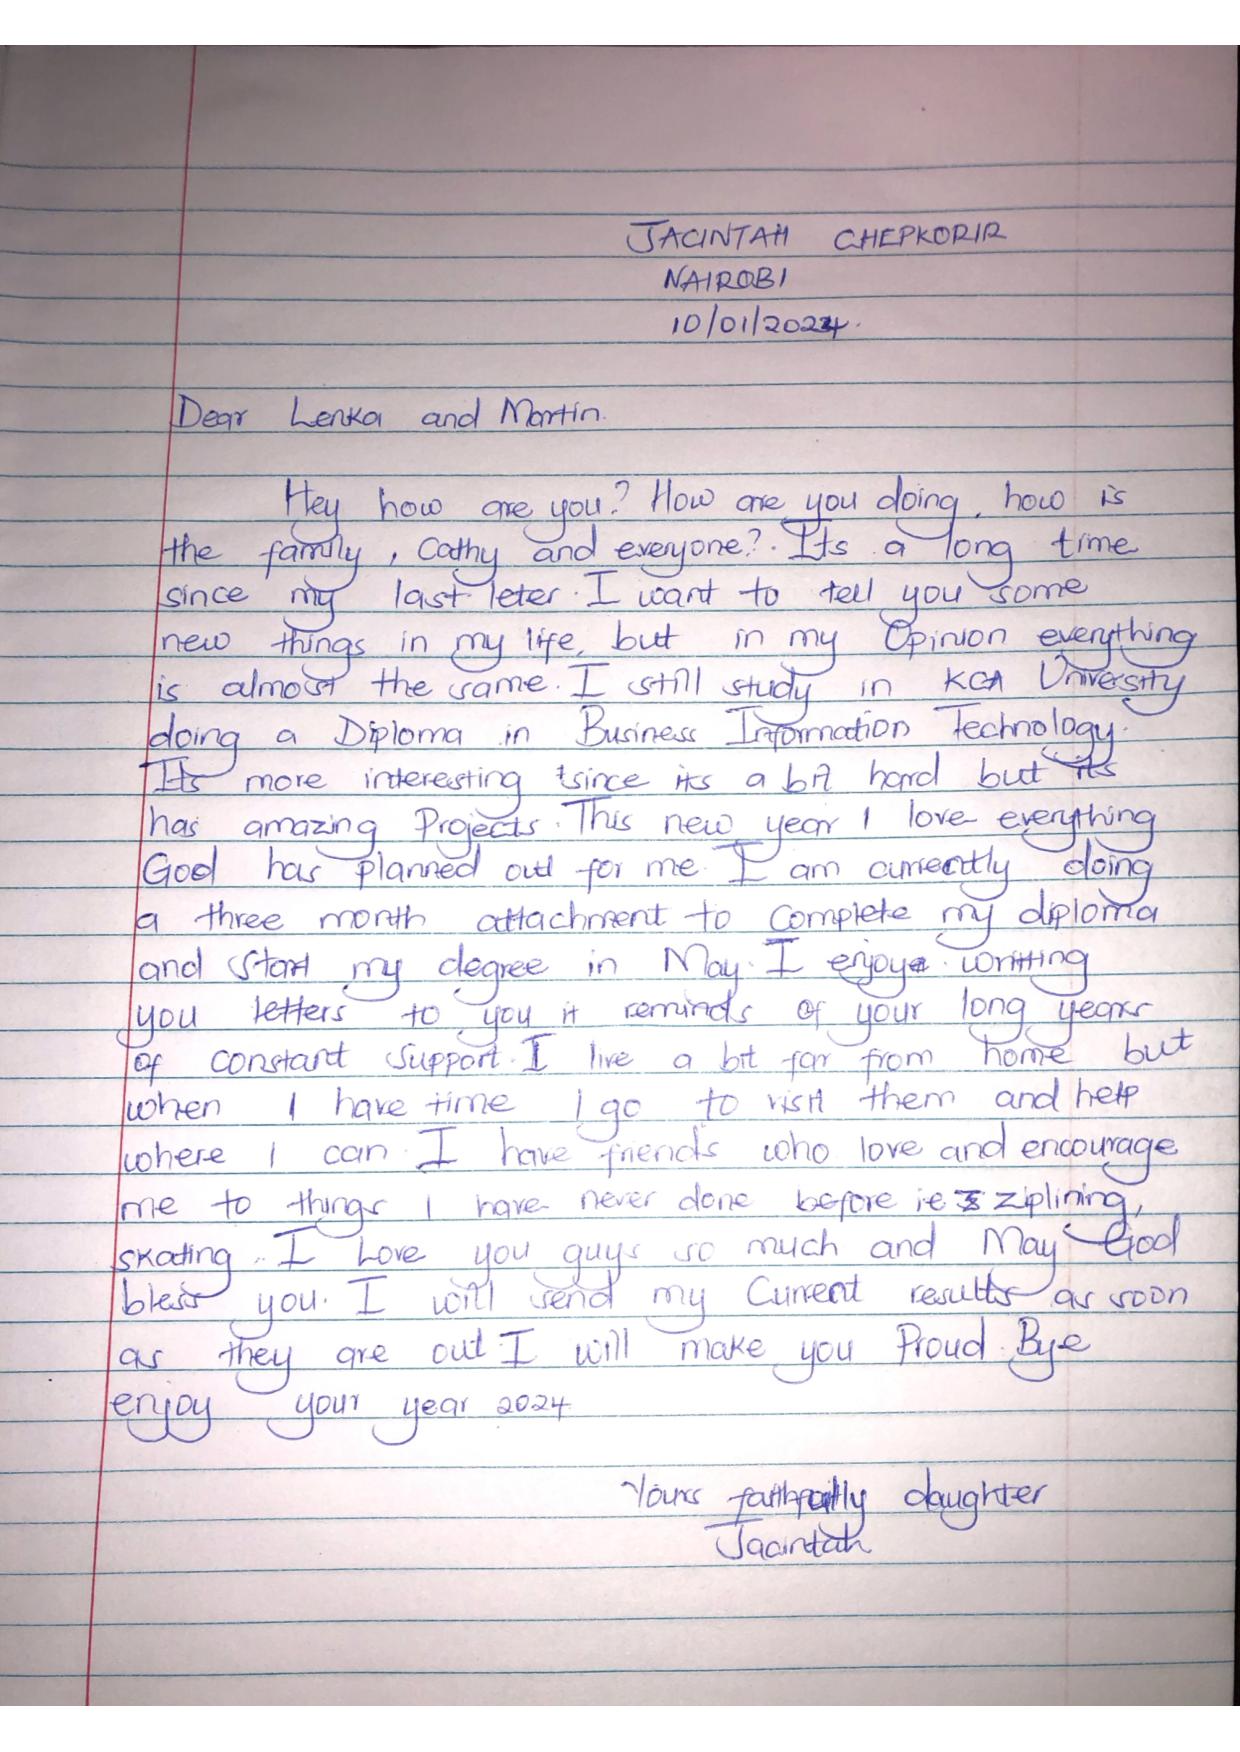 JACINTAH CHEPKORIR
NAIROBI
10/01/2024.
Dear Lenka and Martin.
Hey how are you? How are you doing, how is
the family, Cathy and everyone?. Its a long time
since my last leter. I want to tell you some
new things in my life, but in my Opinion everything
is almost the same. I still study in KCA University
doing a Diploma in Business Information Technology.
Its more interesting since its a bit hard but its
has amazing Projects. This new year I love everything
God has planned out for me. I am currectly doing
a three month attachment to complete my diploma
and start my degree in May. I enjoy writting
you letters to you it reminds of your long years
of constant support. I live a bit far from home but
when I have time I go to visit them and help
where I can. I have friends who love and encourage
me to things I have never done before ie ziplining,
skating. I Love you guys so much and May God
bless you. I will send my Current results as soon
as they are out. I will make you Proud. Bye
enjoy your year 2024.
Yours faithfully daughter
Jacintah